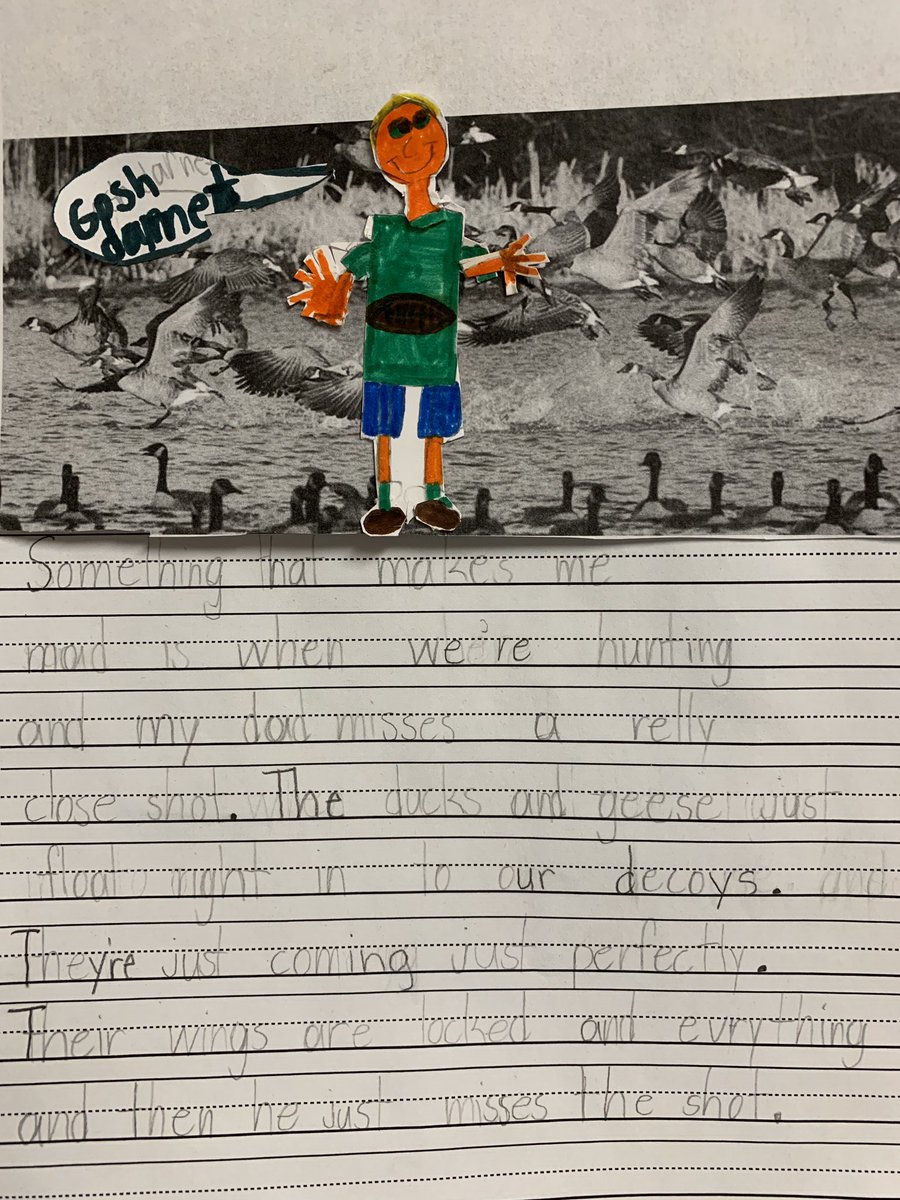 Gosh
darnet
Something that makes me
mad is when we're hunting
and my dad misses a relly
close shot. The ducks and geese just
float right in to our decoys.
They're just coming just perfectly.
Their wings are locked and evrything
and then he just misses the shot.